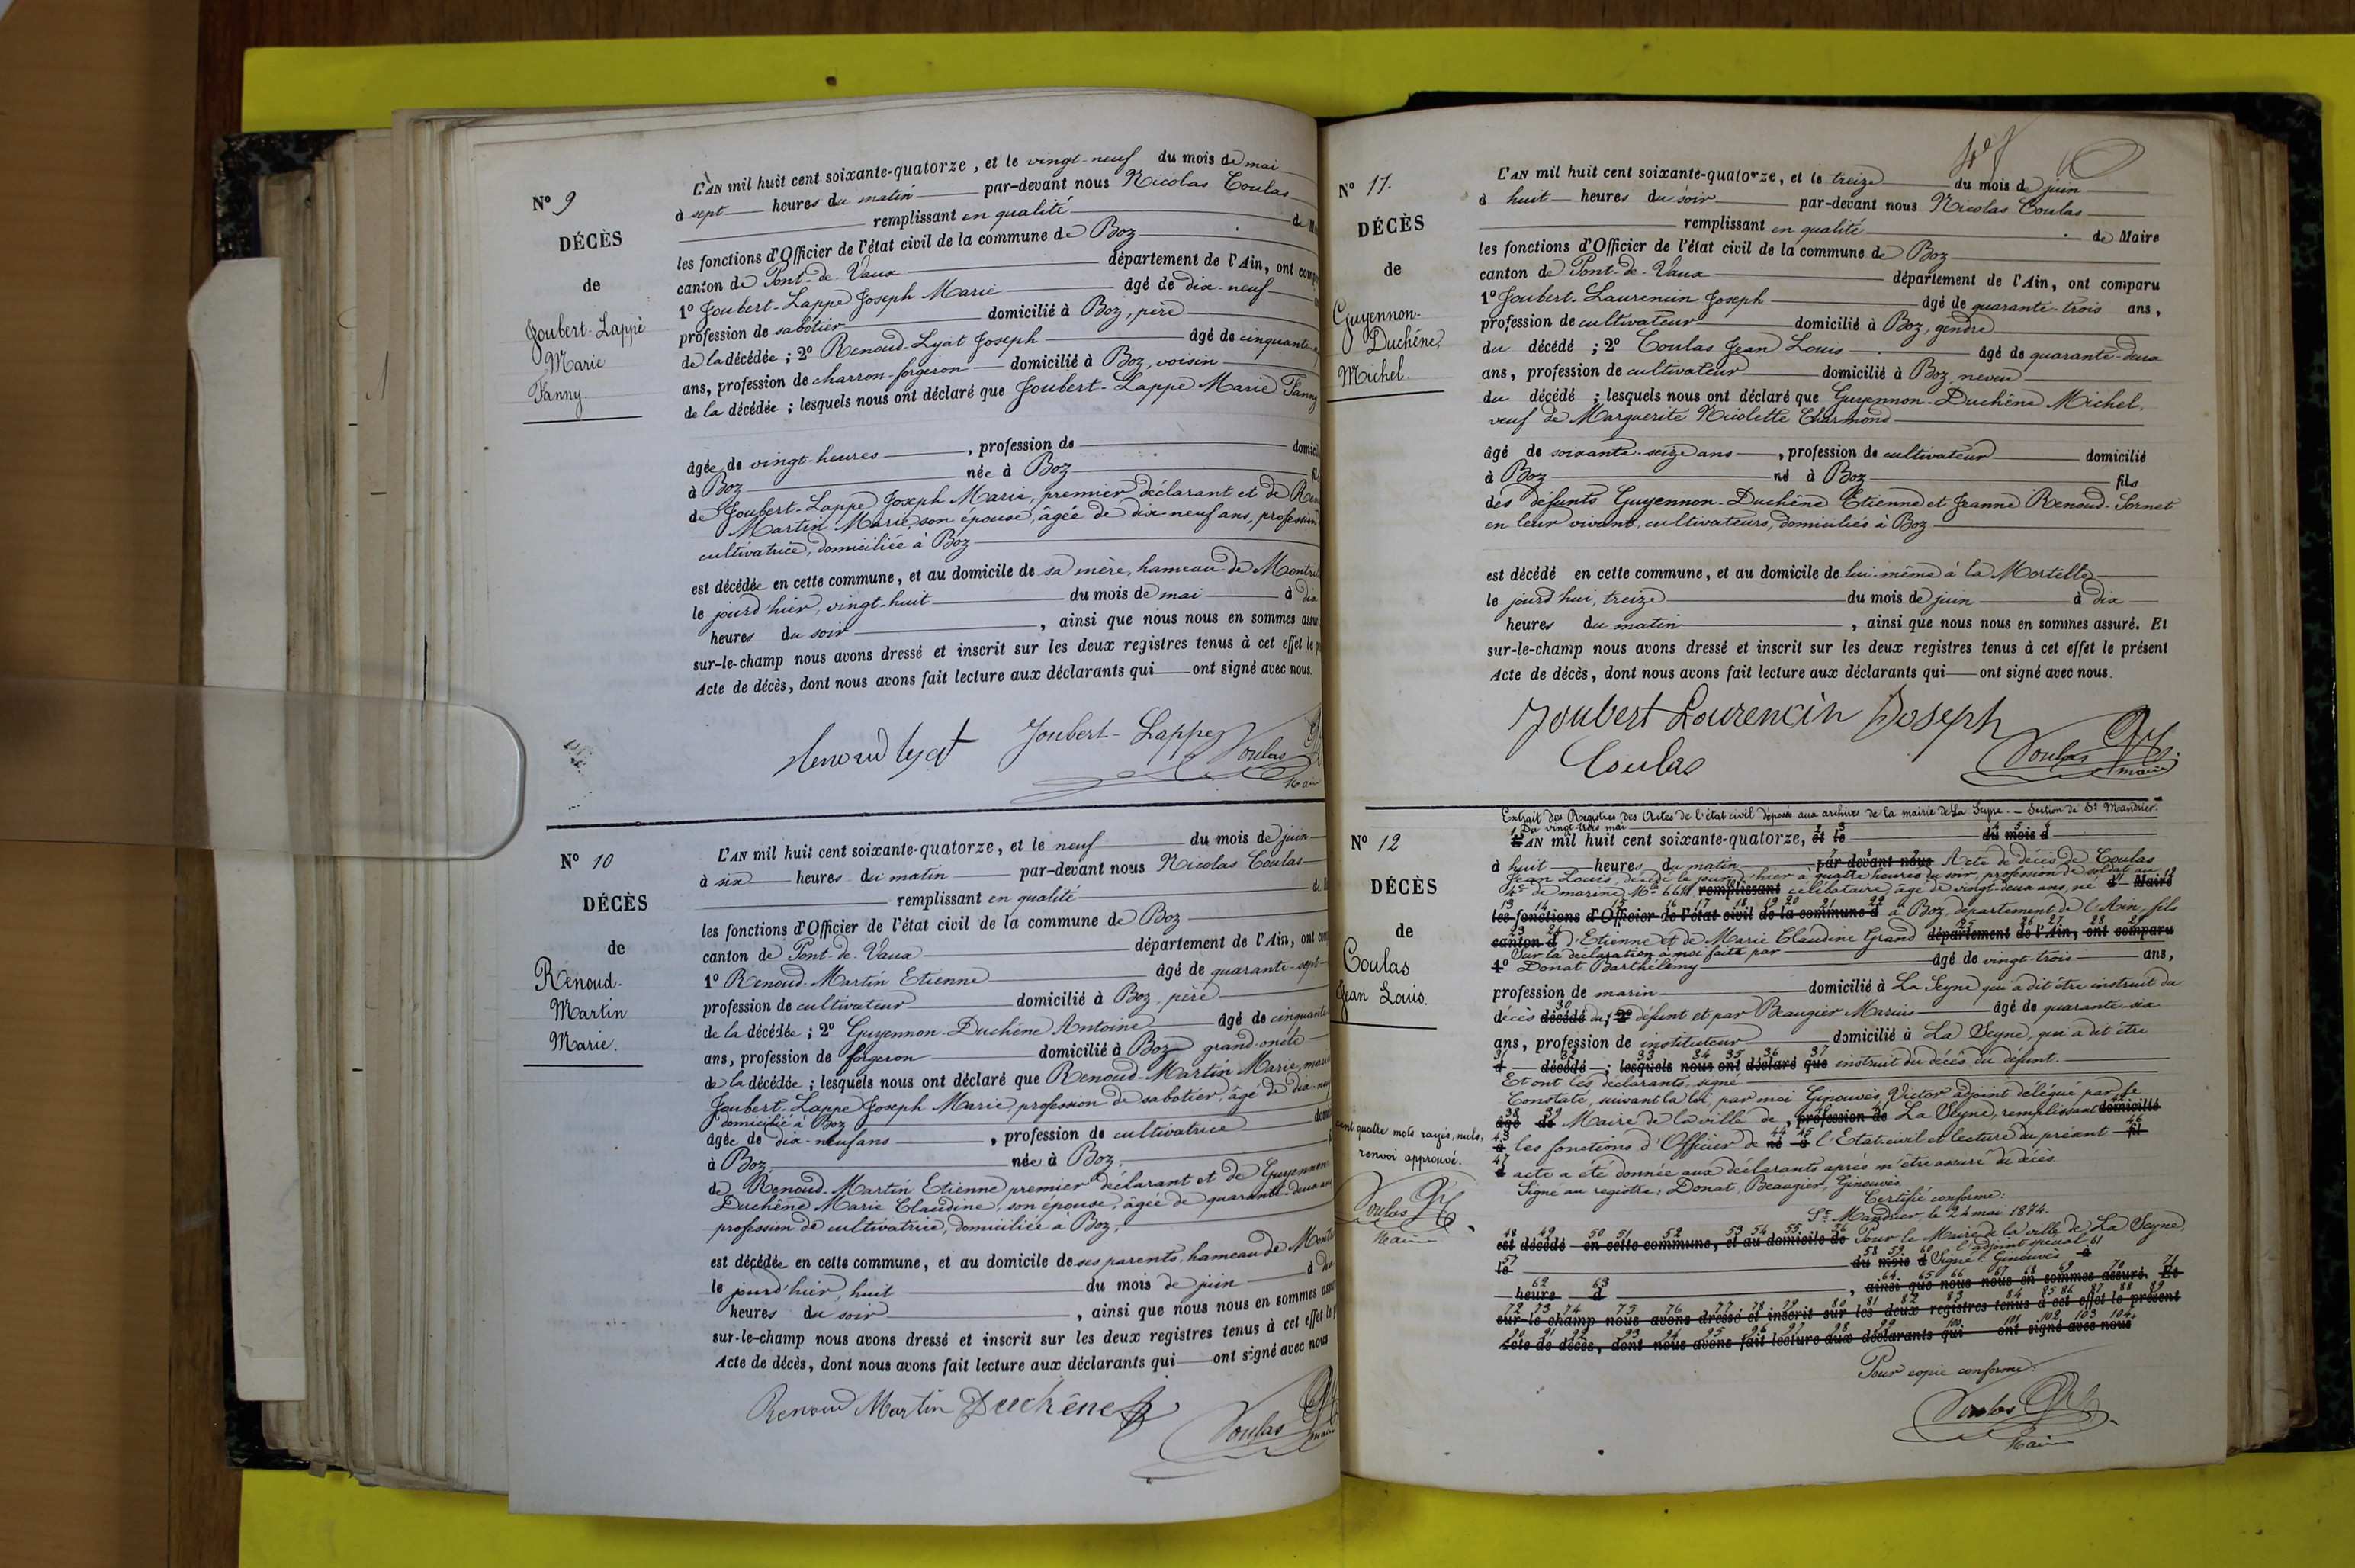 N° 9
DÉCÈS
de
Joubert-Lappe
Marie
Fanny.
L'AN mil huit cent soixante-quatorze, et le vingt-neuf du mois de mai
à sept heures du matin par-devant nous Nicolas Coulas
remplissant en qualité de
les fonctions d'Officier de l'état civil de la commune de Boz
canton de Pont-de-Vaux département de l'Ain, ont
1° Joubert-Lappe Joseph Marie âgé de dix-neuf
profession de sabotier domicilié à Boz, père
de la décédée ; 2° Renoud-Lyat Joseph âgé de cinquante
ans, profession de charron-forgeron domicilié à Boz, voisin
de la décédée ; lesquels nous ont déclaré que Joubert-Lappe Marie Fanny
âgée de vingt heures , profession de
à Boz née à Boz
de Joubert-Lappe Joseph Marie, premier déclarant et de
Martin Marie, son épouse, âgée de dix-neuf ans, profession
cultivatrice, domiciliée à Boz
est décédée en cette commune, et au domicile de sa mère, hameau de
le jourd'hier, vingt-huit du mois de mai à dix
heures du soir , ainsi que nous nous en sommes
sur-le-champ nous avons dressé et inscrit sur les deux registres tenus à cet effet le
Acte de décès, dont nous avons fait lecture aux déclarants qui ont signé avec nous.
Renoud lyat Joubert-Lappe Coulas
Maire
N° 10
DÉCÈS
de
Renoud-
Martin
Marie.
L'AN mil huit cent soixante-quatorze, et le neuf du mois de juin
à six heures du matin par-devant nous Nicolas Coulas
remplissant en qualité
les fonctions d'Officier de l'état civil de la commune de Boz
canton de Pont-de-Vaux département de l'Ain, ont
1° Renoud-Martin Etienne âgé de quarante-sept
profession de cultivateur domicilié à Boz, père
de la décédée ; 2° Guyennon-Duchêne Antoine âgé de cinquante
ans, profession de forgeron domicilié à Boz grand-oncle
de la décédée ; lesquels nous ont déclaré que Renoud-Martin Marie,
Joubert-Lappe Joseph Marie, profession de sabotier, âgé de
domicilié à Boz
âgée de dix-neuf ans , profession de cultivatrice
à Boz, née à Boz,
de Renoud-Martin Etienne premier déclarant et de Guyennon
Duchêne Marie Claudine, son épouse, âgée de quarante-deux ans
profession de cultivatrice, domiciliée à Boz,
est décédée en cette commune, et au domicile de ses parents, hameau de
le jourd'hier, huit du mois de juin à
heures du soir , ainsi que nous nous en sommes
sur-le-champ nous avons dressé et inscrit sur les deux registres tenus à cet effet le
Acte de décès, dont nous avons fait lecture aux déclarants qui ont signé avec nous
Renoud Martin Duchêne Coulas
maire
N° 11.
DÉCÈS
de
Guyennon-
Duchêne
Michel.
L'AN mil huit cent soixante-quatorze, et le treize du mois de juin
à huit heures du soir par-devant nous Nicolas Coulas
remplissant en qualité de Maire
les fonctions d'Officier de l'état civil de la commune de Boz
canton de Pont-de-Vaux département de l'Ain, ont comparu
1° Joubert-Laurencin Joseph âgé de quarante-trois ans,
profession de cultivateur domicilié à Boz, gendre
du décédé ; 2° Coulas Jean Louis âgé de quarante-deux
ans, profession de cultivateur domicilié à Boz, neveu
du décédé ; lesquels nous ont déclaré que Guyennon-Duchêne Michel,
veuf de Marguerite Nicolette Charmond
âgé de soixante-seize ans , profession de cultivateur domicilié
à Boz né à Boz fils
des défunts Guyennon-Duchêne Etienne et Jeanne Renoud-Sornet
en leur vivant, cultivateurs, domiciliés à Boz
est décédé en cette commune, et au domicile de lui-même à la Mortelle
le jourd'hui, treize du mois de juin à dix
heures du matin , ainsi que nous nous en sommes assuré. Et
sur-le-champ nous avons dressé et inscrit sur les deux registres tenus à cet effet le présent
Acte de décès, dont nous avons fait lecture aux déclarants qui ont signé avec nous.
Joubert Lourencin Joseph
Coulas Coulas
maire
N° 12
DÉCÈS
de
Coulas
Jean Louis.
cent quatre mots rayés, nuls,
renvoi approuvé.
Coulas
Maire
Extrait des Registres des Actes de l'état civil déposés aux archives de la mairie de La Seyne. — Section de St Mandrier.
Du vingt-trois mai
L'AN mil huit cent soixante-quatorze, et le du mois d
à huit heures du matin par-devant nous Acte de décès de Coulas
Jean Louis, décédé le jour d'hier à quatre heures du soir, profession de soldat au
4e de marine, Mle 6611 remplissant célibataire, âgé de vingt-deux ans, né d Maire
les fonctions d'Officier de l'état civil de la commune d à Boz, département de l'Ain, fils
canton d d'Etienne et de Marie Claudine Grand département de l'Ain, ont comparu
Sur la déclaration à moi faite par
1° Donat Barthélémy âgé de vingt-trois ans,
profession de marin domicilié à La Seyne qui a dit être instruit du
décès décédé du ; 2° défunt et par Beaugier Marius âgé de quarante-six
ans, profession de instituteur domicilié à La Seyne, qui a dit être
d décédé ; lesquels nous ont déclaré que instruit du décès du défunt.
Et ont les déclarants signé
Constaté, suivant la loi, par moi Ginouvès, Victor adjoint délégué par le
âgé de Maire de la ville de , profession de La Seyne, remplissant domicilié
à les fonctions d'Officier de né à l'Etat civil et lecture du présent fil
d acte a été donnée aux déclarants après m'être assuré du décès
Signé au registre : Donat, Beaugier, Ginouvès
Certifié conforme :
St Mandrier, le 24 mai 1874.
est décédé en cette commune, et au domicile de Pour le Maire de la ville de La Seyne,
l'adjoint spécial
le du mois d Signé : Ginouvès à
heure d , ainsi que nous nous en sommes assuré. Et
sur-le-champ nous avons dressé et inscrit sur les deux registres tenus à cet effet le présent
Acte de décès, dont nous avons fait lecture aux déclarants qui ont signé avec nous
Pour copie conforme.
Coulas
Maire